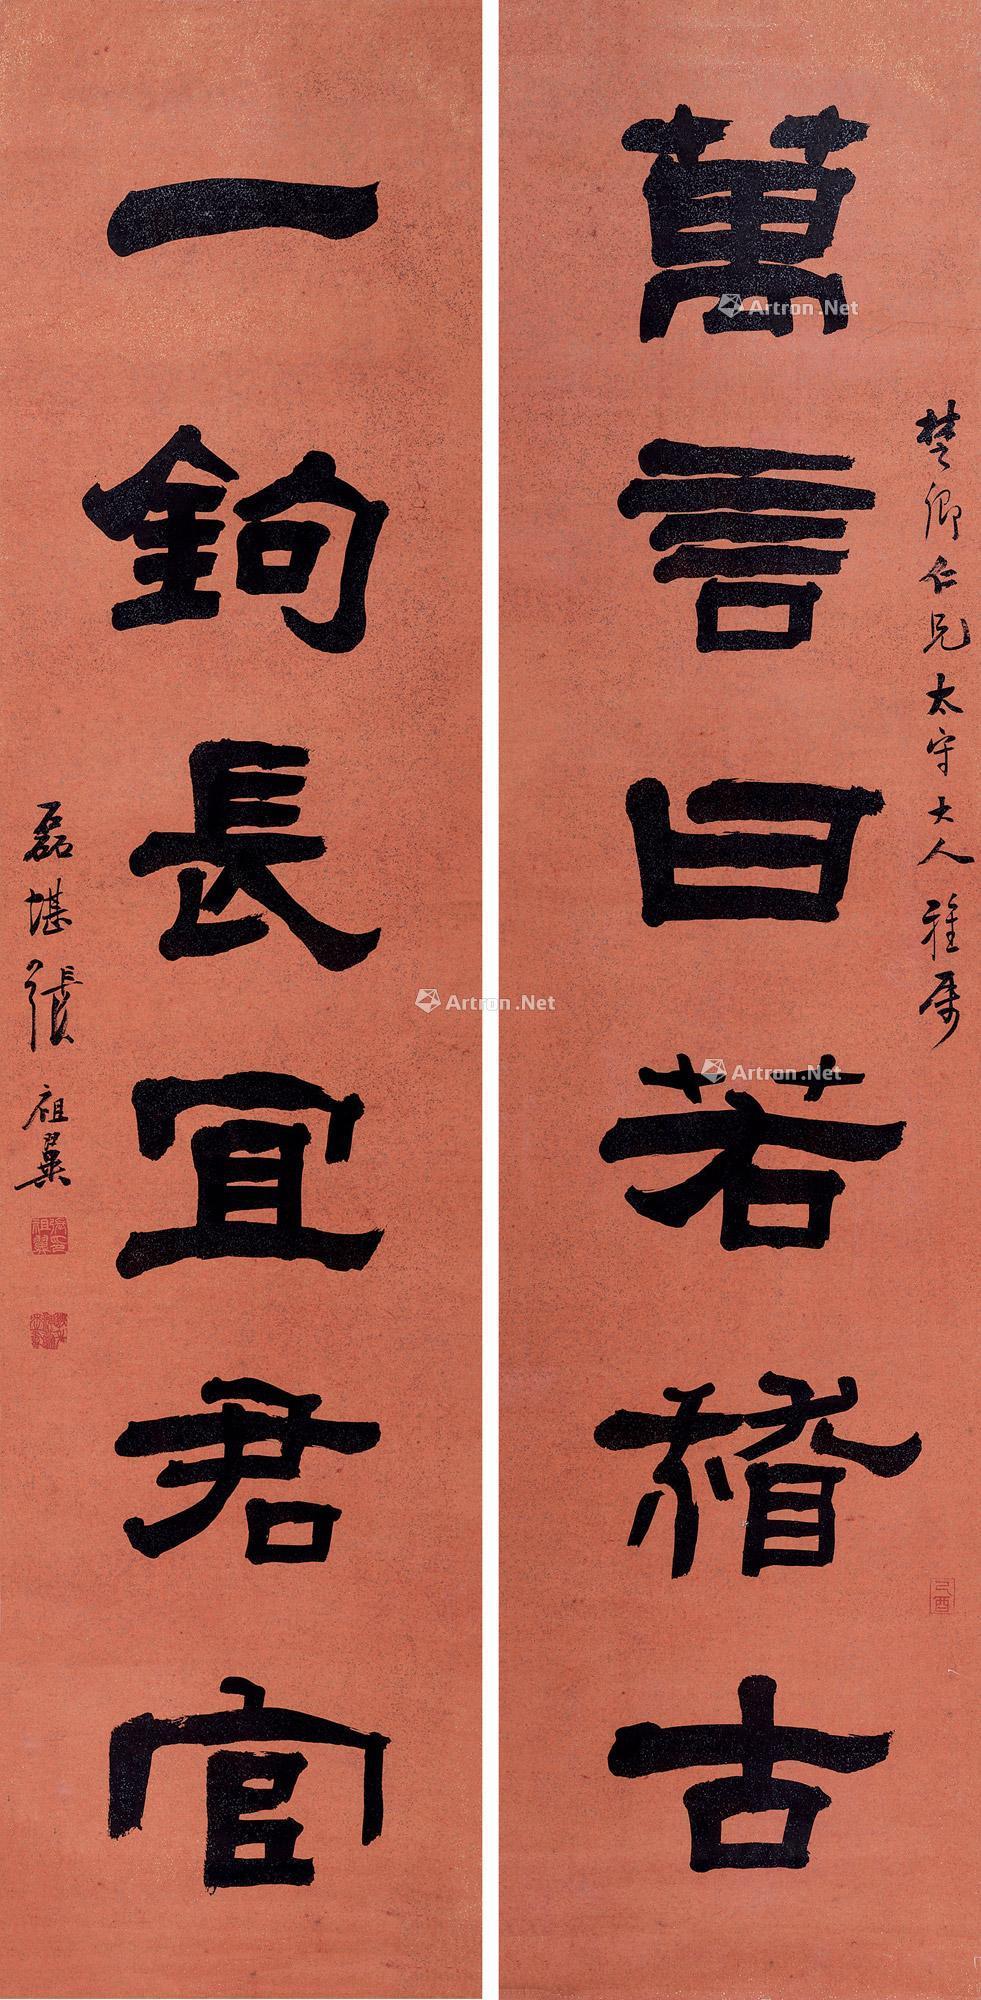 萬言曰若稽古
楚卿仁兄太守大人雅屬
己酉
一鉤長宜君官
磊堪張祖翼
張祖翼印
Artron.Net
Artron.Net
Artron.Net